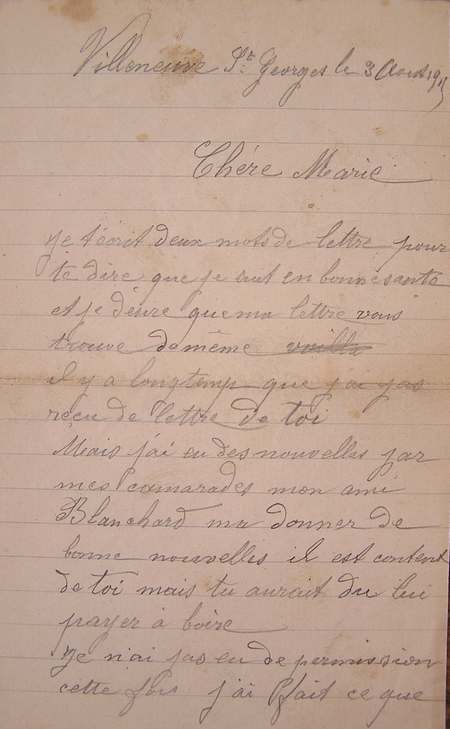 Villeneuve St Georges le 3 Aout 1915
Chére Marie
je t'écrit deux mots de lettre pour
te dire que je suit en bonne santé
et je désire que ma lettre vous
trouve de même
il y a longtemp que j'ai pas
reçu de lettre de toi
Mais j'ai eu des nouvelles par
mes camarades mon ami
Blanchard ma donner de
bonne nouvelles il est content
de toi mais tu aurait du lui
payer à boire
Je n'ai pas eu de permission
cette fois j'ai fait ce que